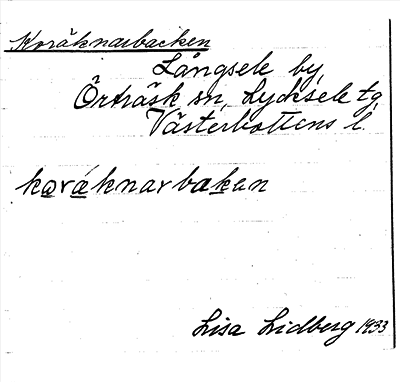 Koräknarbacken
Långsele by,
Örträsk sn, Lycksele tg,
Västerbottens l.
koráknarbakan
Lisa Lidberg 1933